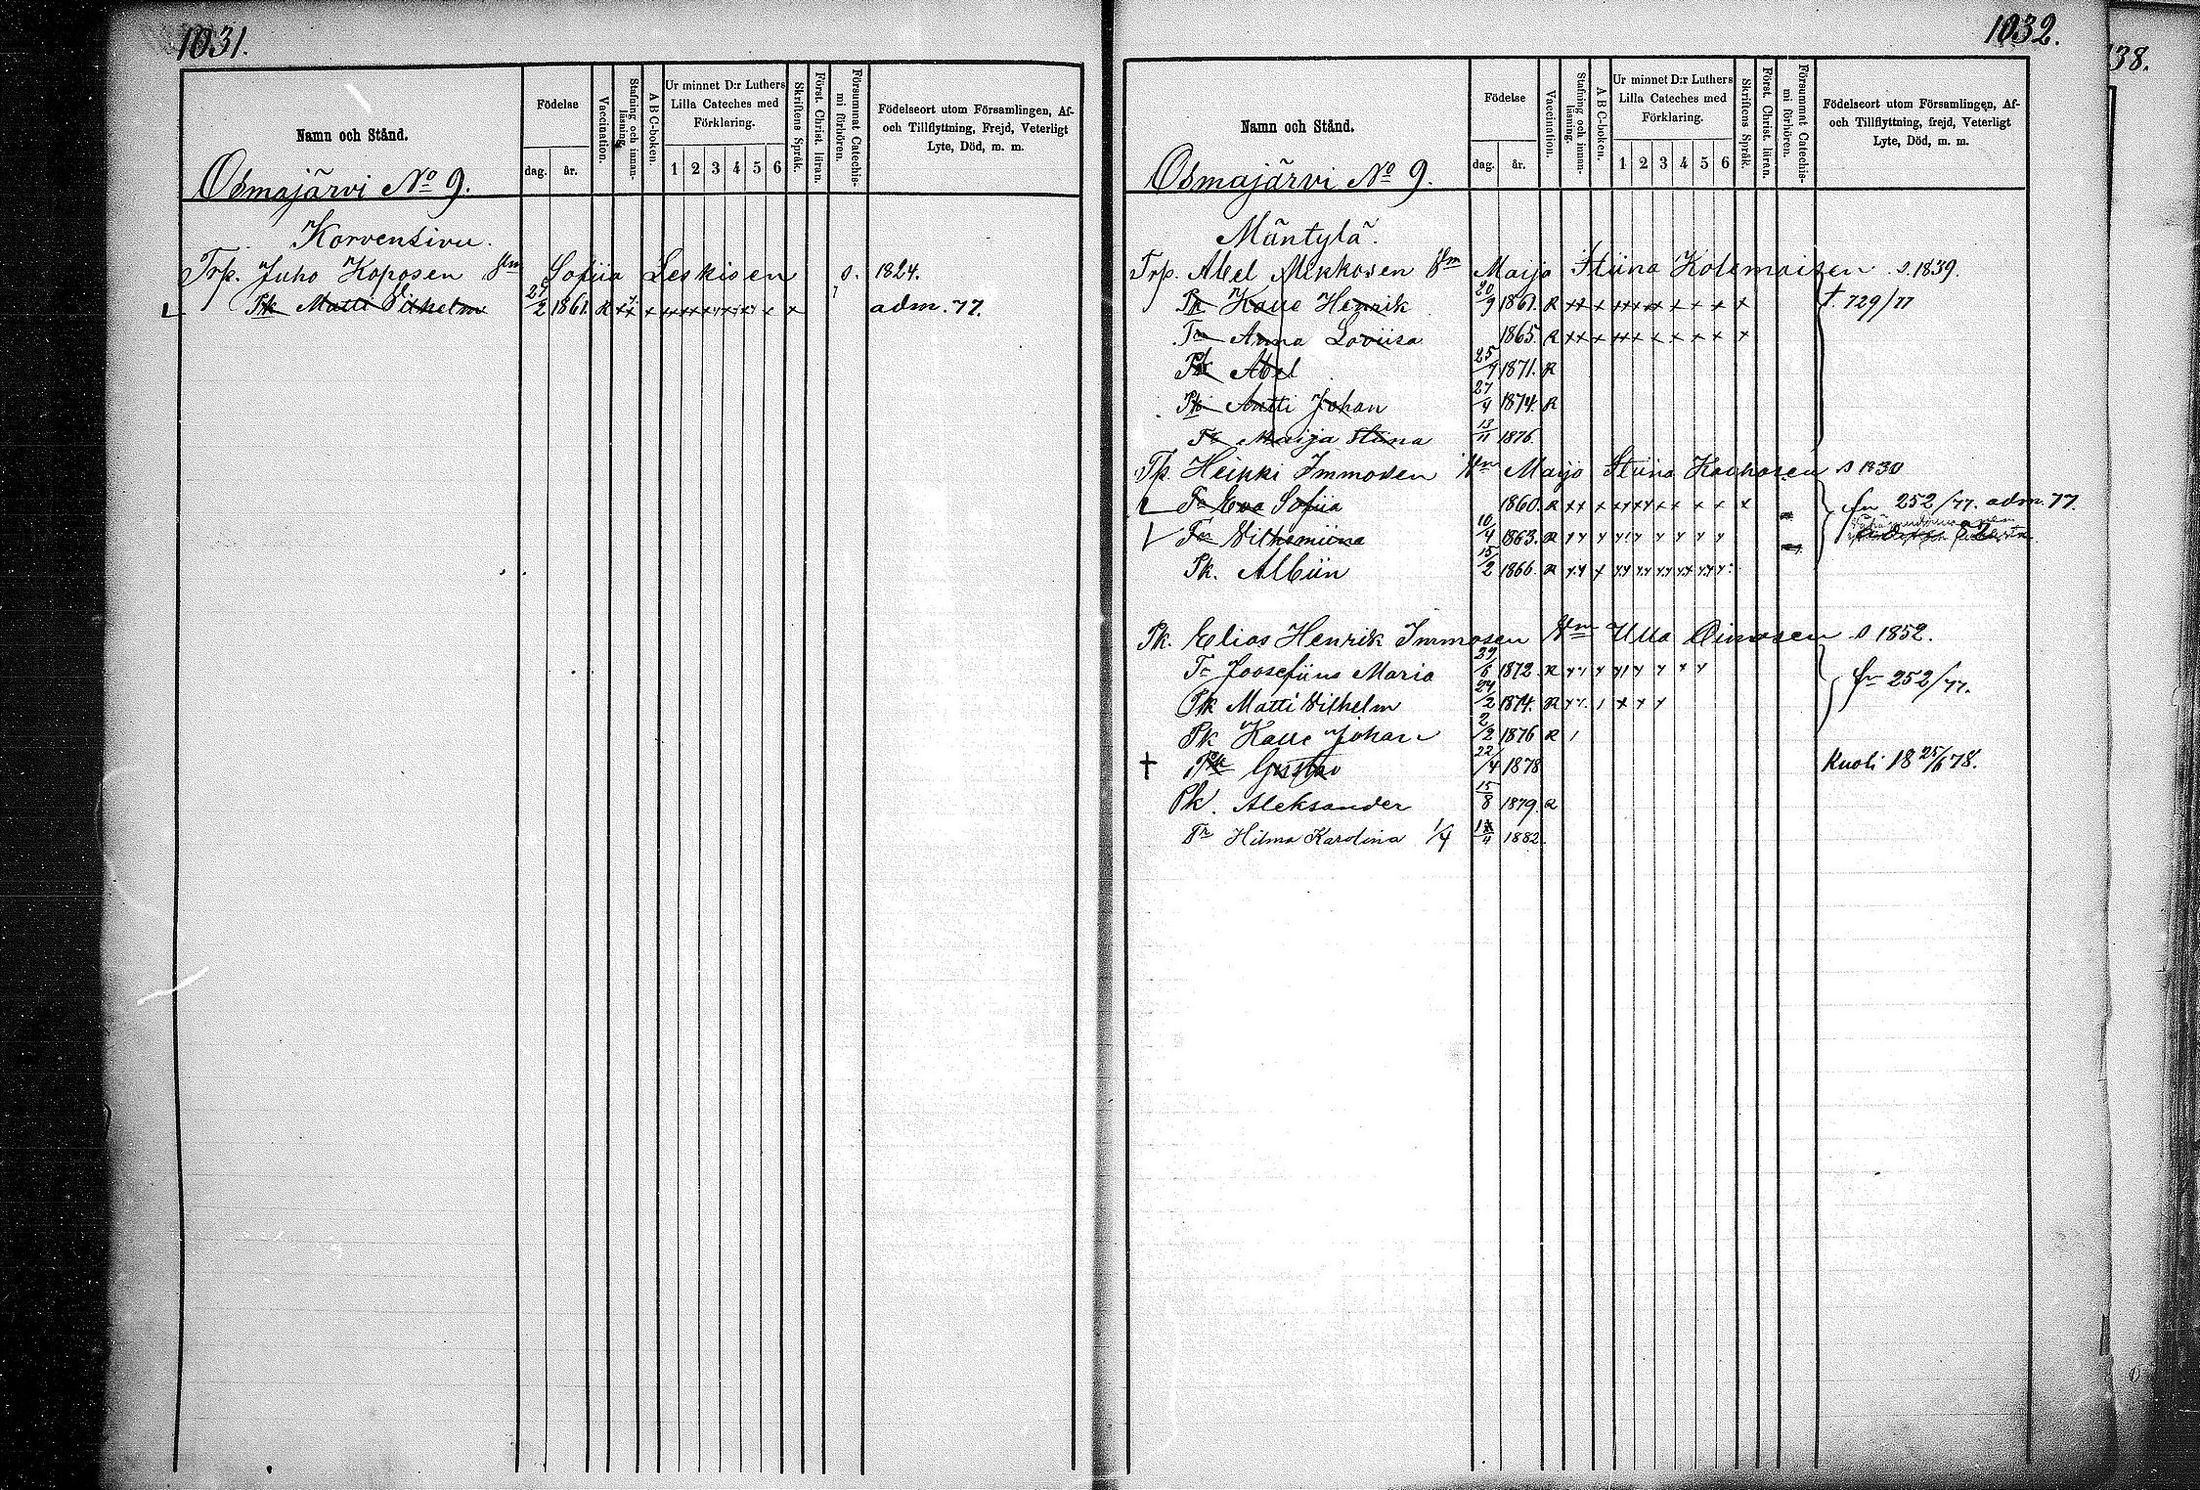 1031.
Namn och Stånd.
Födelse
dag.
år.
Vaccination.
Stafning och innan-
läsning.
A B C-boken.
Ur minnet D:r Luthers
Lilla Cateches med
Förklaring.
1 2 3 4 5 6
Skriftens Språk.
Först. Christ. läran.
Försummat Catechis-
mi förhören.
Födelseort utom Församlingen, Af-
och Tillflyttning, Frejd, Veterligt
Lyte, Död, m. m.
Osmajärvi No 9.
Korvensivu.
Trp. Juho Koposen Vm Sofiia Leskisen s. 1824.
Pk Matti Vilhelm 2 1861. R adm. 77.
1032.
Namn och Stånd.
Födelse
dag.
år.
Vaccination.
Stafning och innan-
läsning.
A B C-boken.
Ur minnet D:r Luthers
Lilla Cateches med
Förklaring.
1 2 3 4 5 6
Skriftens Språk.
Först. Christ. läran.
Försummat Catechis-
mi förhören.
Födelseort utom Församlingen, Af-
och Tillflyttning, frejd, Veterligt
Lyte, Död, m. m.
Osmajärvi No 9.
Mäntylä.
Trp. Abel Mikkosen Vm Maija Stiina Kolemaisen s. 1839.
Pk Kalle Henrik 20/9 1861. R t. 729/77
Tr Anna Loviisa 1865. R
Pk Abel 25/9 1871. R
Pk Antti Johan 27/4 1874. R
Tr Maija Stiina 13/11 1876.
Trp. Heikki Immosen Vm Maija Stiina Kauhasen s 1830
Tr Eva Sofiia 1860. R fr 252/77. adm. 77.
Tr Vilhemiina 10/4 1863. R
Pk. Albiin 15/2 1866. R
Pk. Elias Henrik Immosen Vm Ulla Oinosen s 1852.
Tr Joosefiina Maria 29/6 1872. R fr 252/77.
Pk Matti Vilhelm 24/2 1874. R
Pk Kalle Johan 2/2 1876 R
† Pk Gustav 22/4 1878 Kuoli 18 25/6 78.
Pk. Aleksander 15/8 1879. R
Tr Hilma Karolina 1/4 1882.
38.